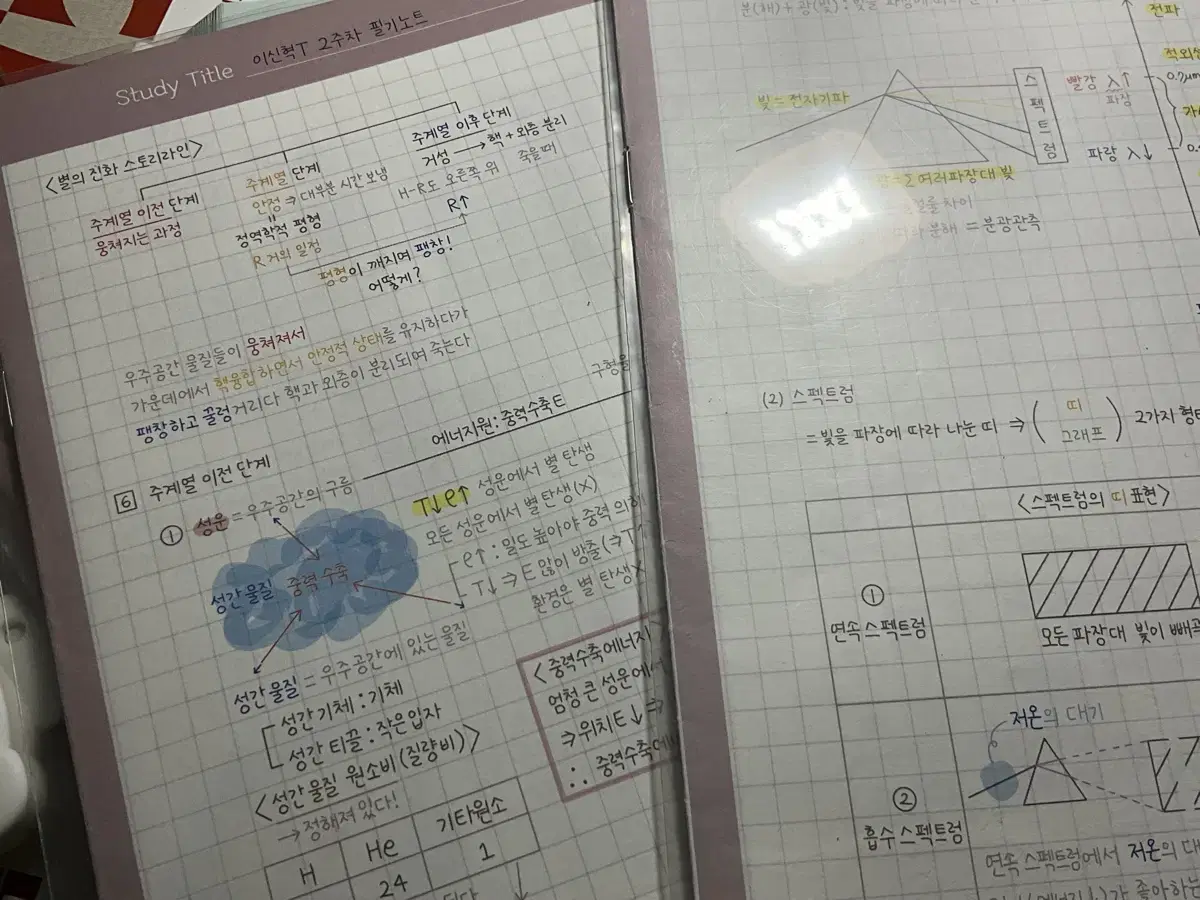 Study Title 이신혁T 2주차 필기노트
<별의 진화 스토리라인>
주계열 이전 단계
뭉쳐지는 과정
주계열 단계
안정 ⇒ 대부분 시간 보냄
=
정역학적 평형
R 거의 일정
주계열 이후 단계
거성 → 핵 + 외층 분리
H-R도 오른쪽 위 죽을때
R↑
평형이 깨지며 팽창!
어떻게?
우주공간 물질들이 뭉쳐져서
가운데에서 핵융합하면서 안정적 상태를 유지하다가
팽창하고 꿀렁거리다 핵과 외층이 분리되며 죽는다
구형을
6 주계열 이전 단계
에너지원: 중력수축 E
① 성운 = 우주공간의 구름
성간 물질 중력 수축
T↓ρ↑ 성운에서 별 탄생
모든 성운에서 별 탄생(X)
ρ↑ : 밀도 높아야 중력
T↓ ⇒ E 많이 방출(⇒T↑
환경은 별 탄생X
성간 물질 = 우주공간에 있는 물질
성간 기체 : 기체
성간 티끌 : 작은 입자
<성간 물질 원소비 (질량비)>
→ 정해져 있다!
H He 기타원소
24 1
<중력수축에너지>
엄청 큰 성운에서
⇒ 위치E↓ ⇒
∴ 중력수축에
분(해) + 광(빛) : 빛을 파장에
빛=전자기파
스펙트럼
빨강 λ↑
파장
파랑 λ↓
전파
적외선
0.7μm
Σ 여러파장대 빛
차이
분해 = 분광관측
(2) 스펙트럼
= 빛을 파장에 따라 나눈 띠 ⇒ ( 띠 그래프 ) 2가지 형태
<스펙트럼의 띠 표현>
①
연속 스펙트럼
모든 파장대 빛이 빼곡
②
흡수 스펙트럼
저온의 대기
연속 스펙트럼에서 저온의 대
좋아하는